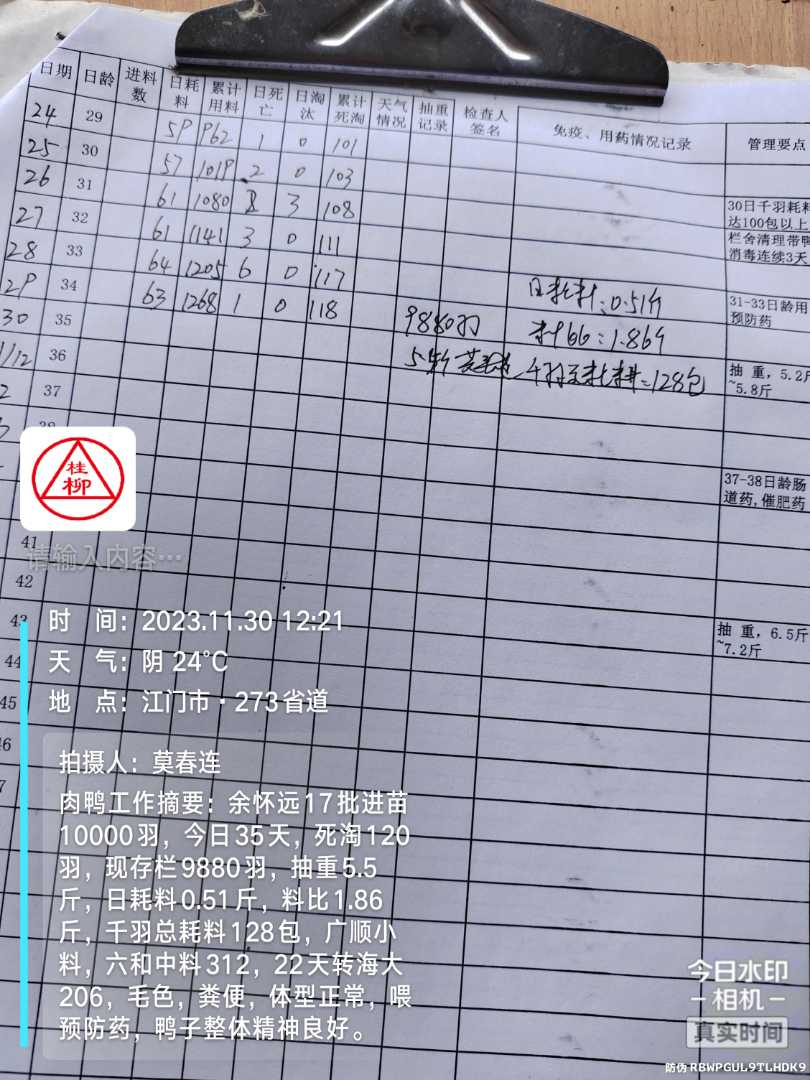 日期 日龄 进料数 日耗料 累计用料 日死亡 日淘汰 累计死淘 天气情况 抽重记录 检查人签名 免疫、用药情况记录 管理要点
24 29 59 962 1 0 101
25 30 57 1019 2 0 103
26 31 61 1080 2 3 108
30日千羽耗料
达100包以上
27 32 61 1141 3 0 111
栏舍清理带鸭
消毒连续3天
28 33 64 1205 6 0 117
29 34 63 1268 1 0 118 日耗料:0.51斤
31-33日龄用
预防药
30 35 9880羽 料比:1.86斤
1/12 36 5.5斤 千羽总耗料=128包
抽重，5.2斤
~5.8斤
2 37
3 38
37-38日龄肠
道药,催肥药
桂
柳
41
请输入内容…
42
43
抽重，6.5斤
~7.2斤
44
45
46
时间：2023.11.30 12:21
天气：阴 24℃
地点：江门市·273省道
拍摄人：莫春连
肉鸭工作摘要：余怀远17批进苗
10000羽，今日35天，死淘120
羽，现存栏9880羽，抽重5.5
斤，日耗料0.51斤，料比1.86
斤，千羽总耗料128包，广顺小
料，六和中料312，22天转海大
206，毛色，粪便，体型正常，喂
预防药，鸭子整体精神良好。
今日水印
相机
真实时间
防伪 RBWPGUL9TLHDK9